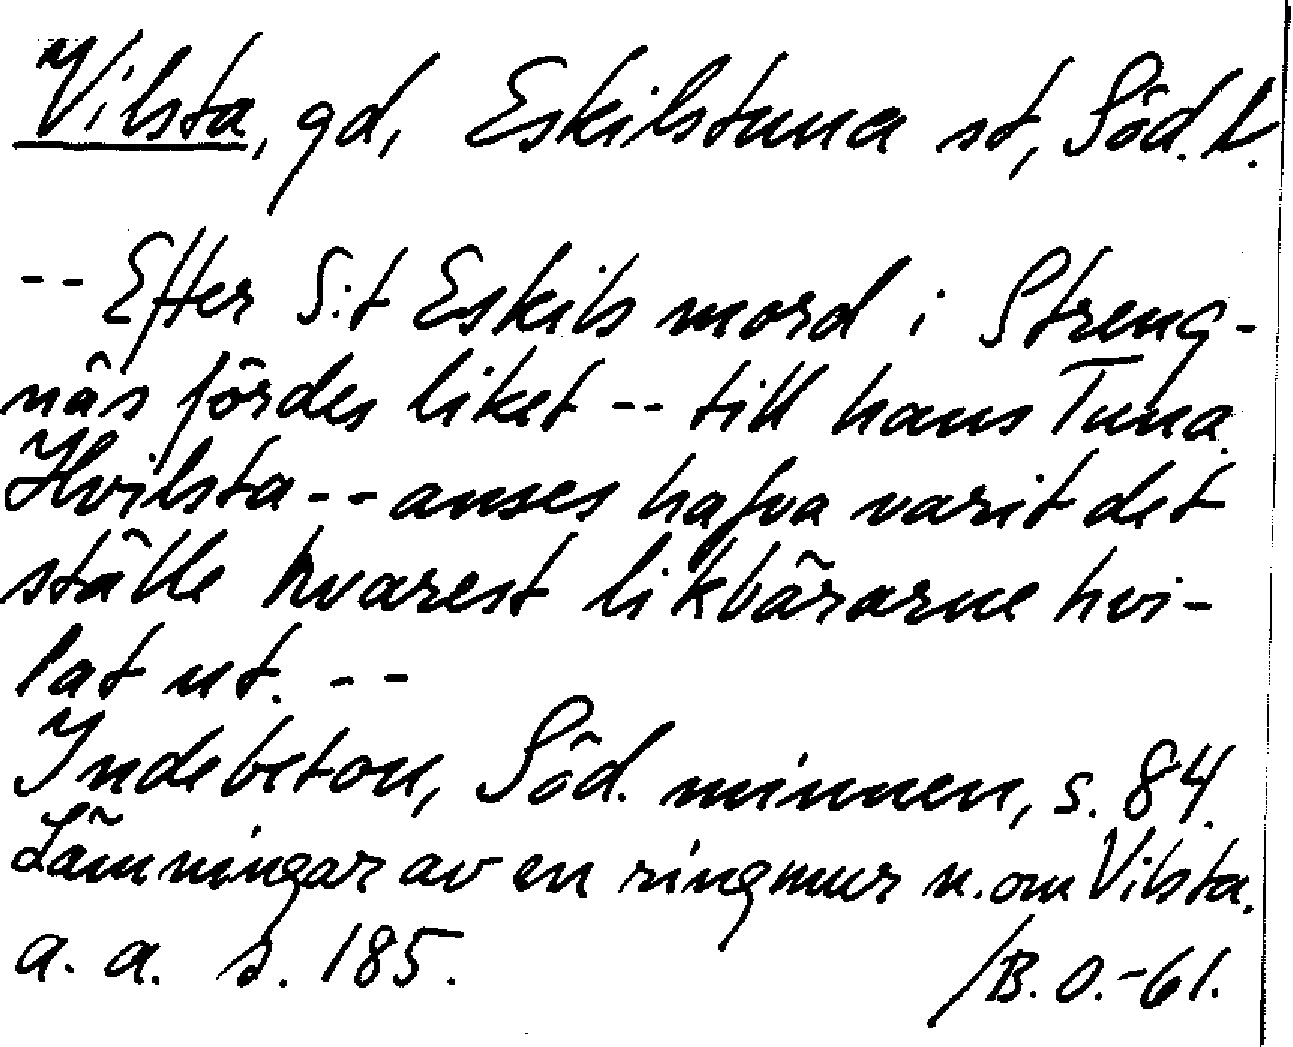 Vilsta, gd, Eskilstuna st, Söd. l.
-- Efter S:t Eskils mord i Streng-
näs fördes liket -- till hans Tuna.
Hvilsta -- anses hafva varit det
ställe hvarest likbärarne hvi-
lat ut. --
Indebetou, Söd. minnen, s. 84.
Lämningar av en ringmur n. om Vilsta.
a. a. s. 185. /B. O. -61.